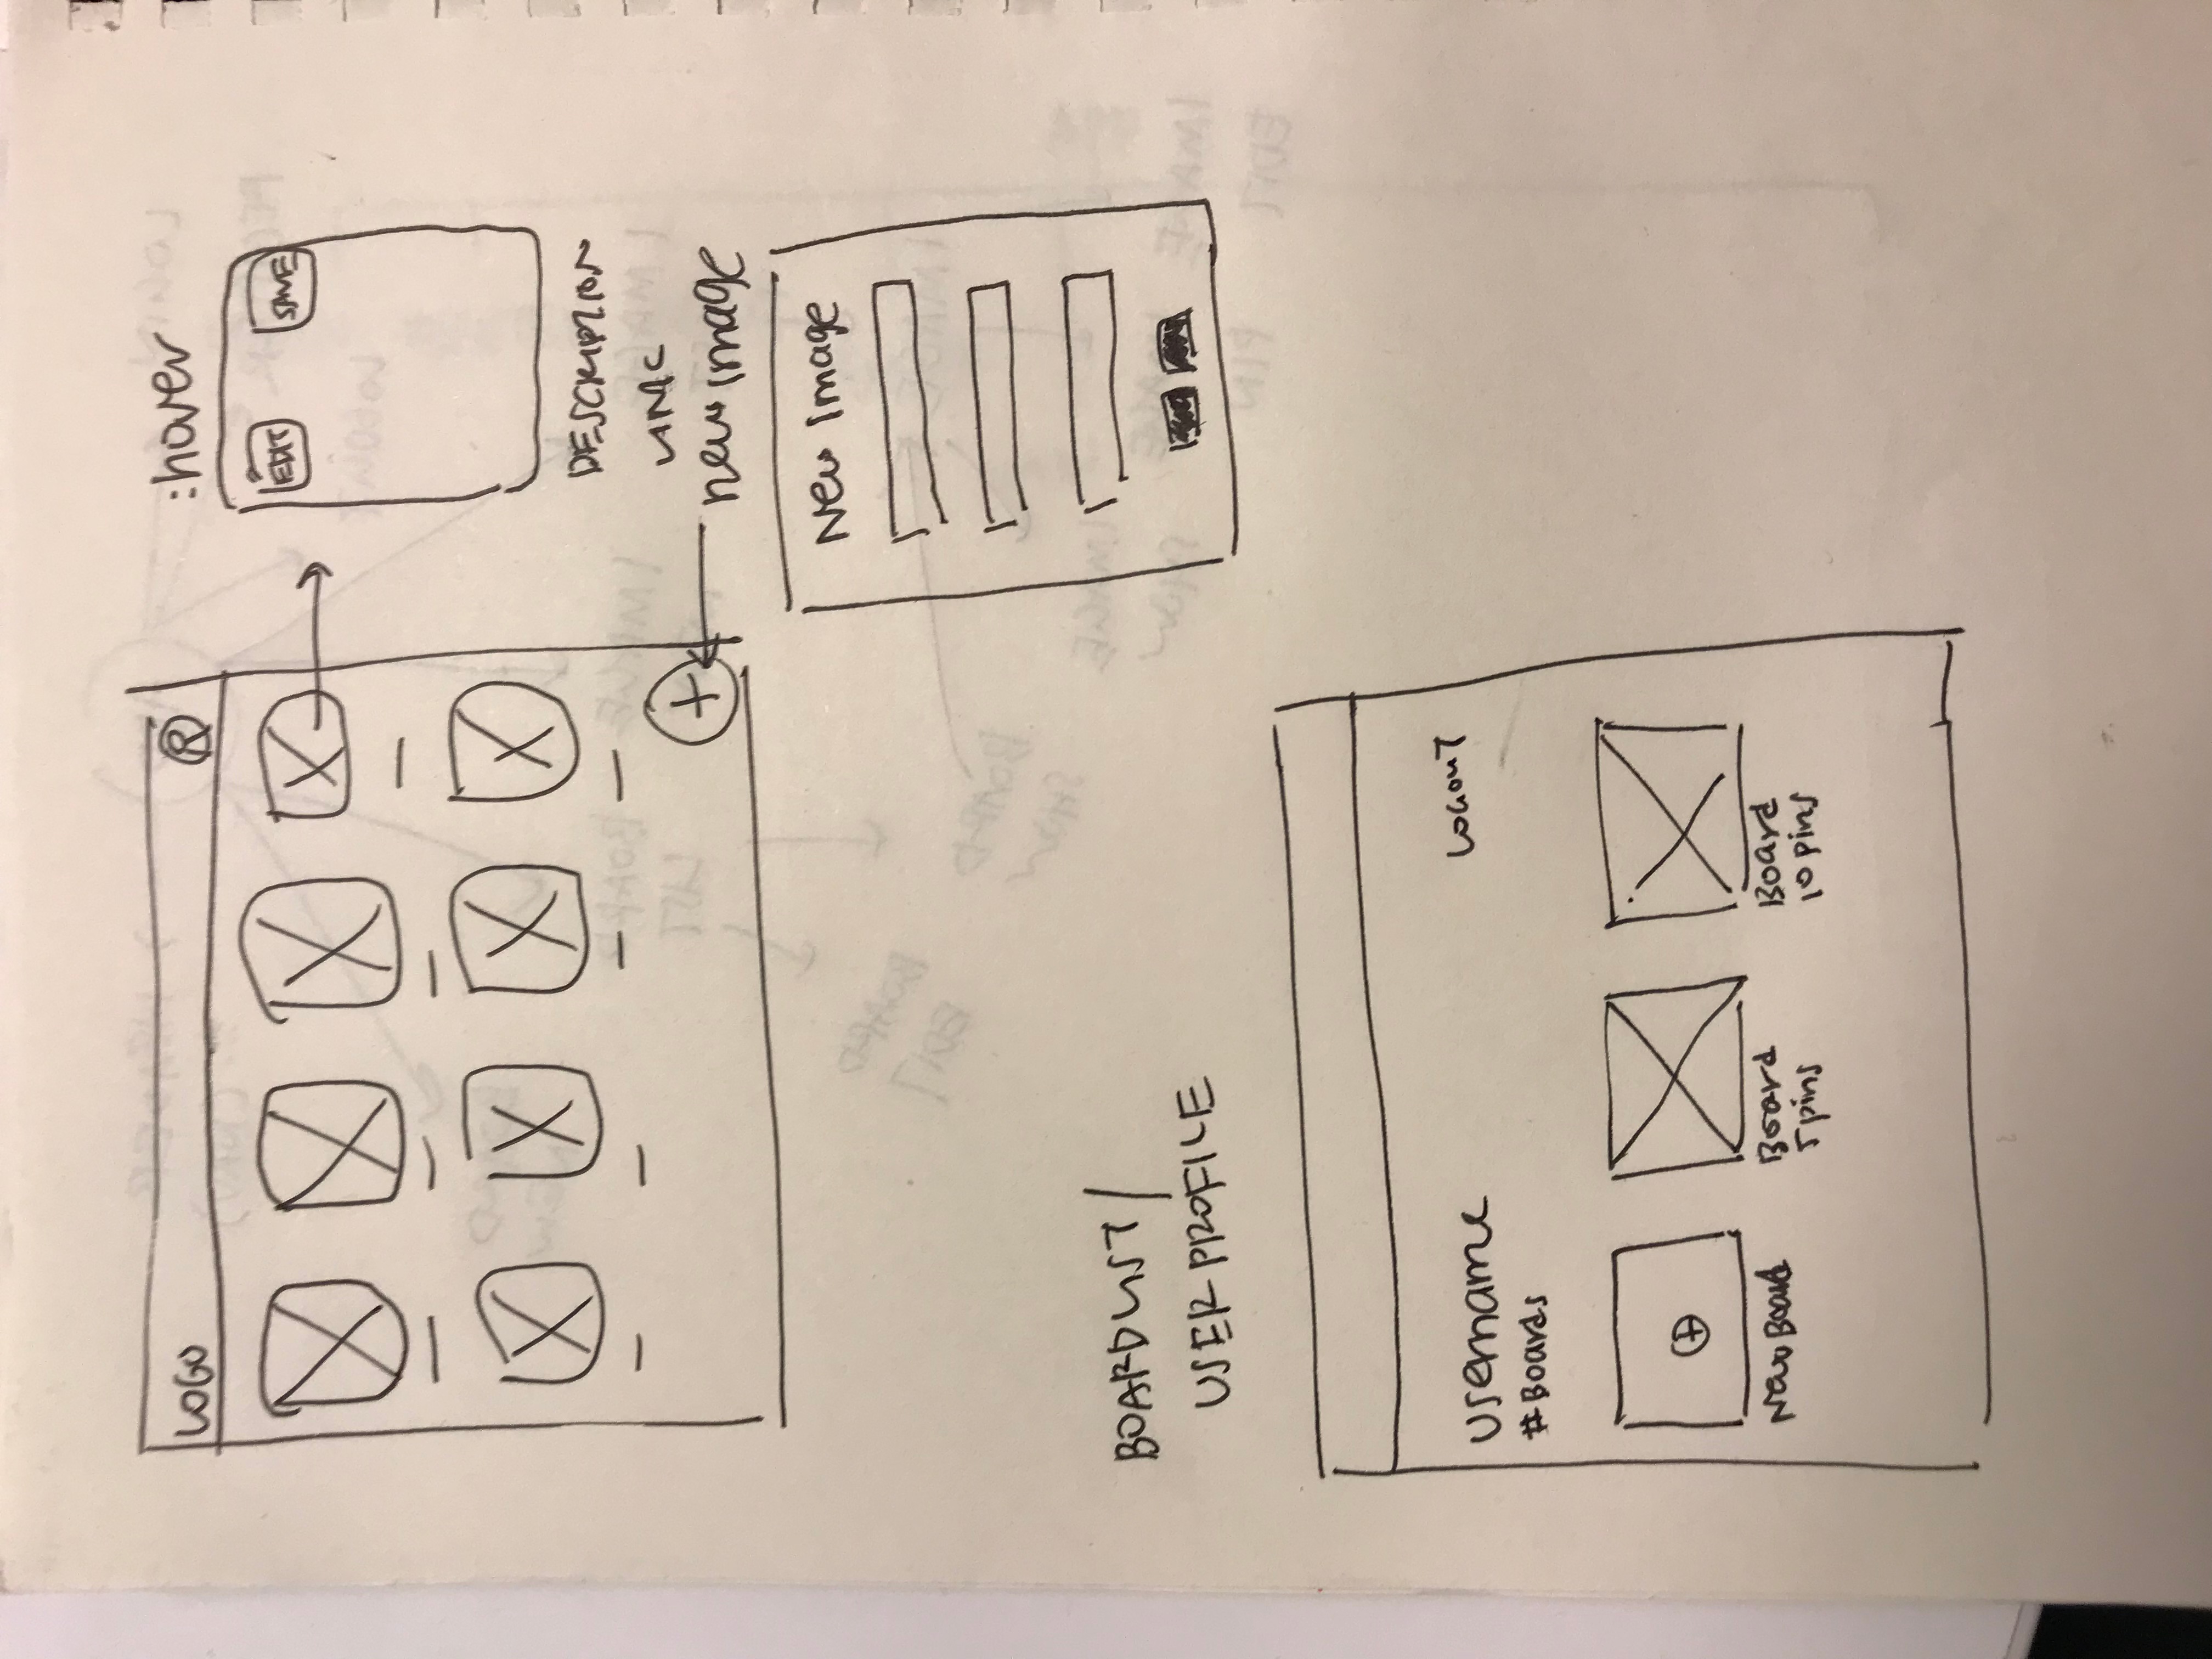 LOGO
R
:hover
EDIT
SAVE
DESCRIPTION
new image
New Image
BOARDLIST/
USER PROFILE
username
LOGOUT
#Boards
New Board
Board
5 pins
Board
10 pins